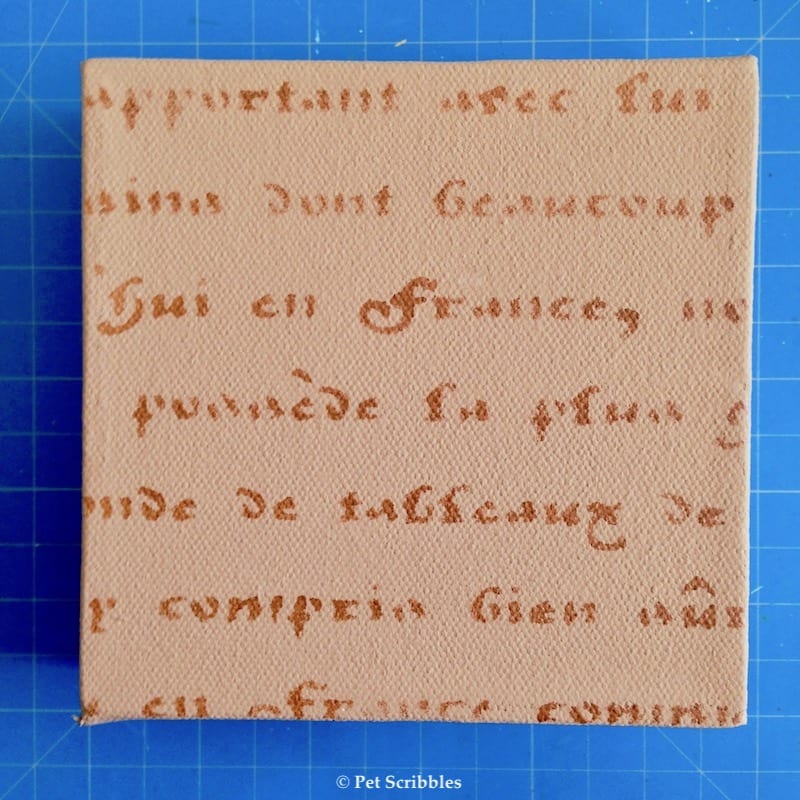 apportant avec lui
ains dont beaucoup
'hui en France, no
possède la plus g
onde de tableaux de
y compris bien sûr
en France comm
© Pet Scribbles